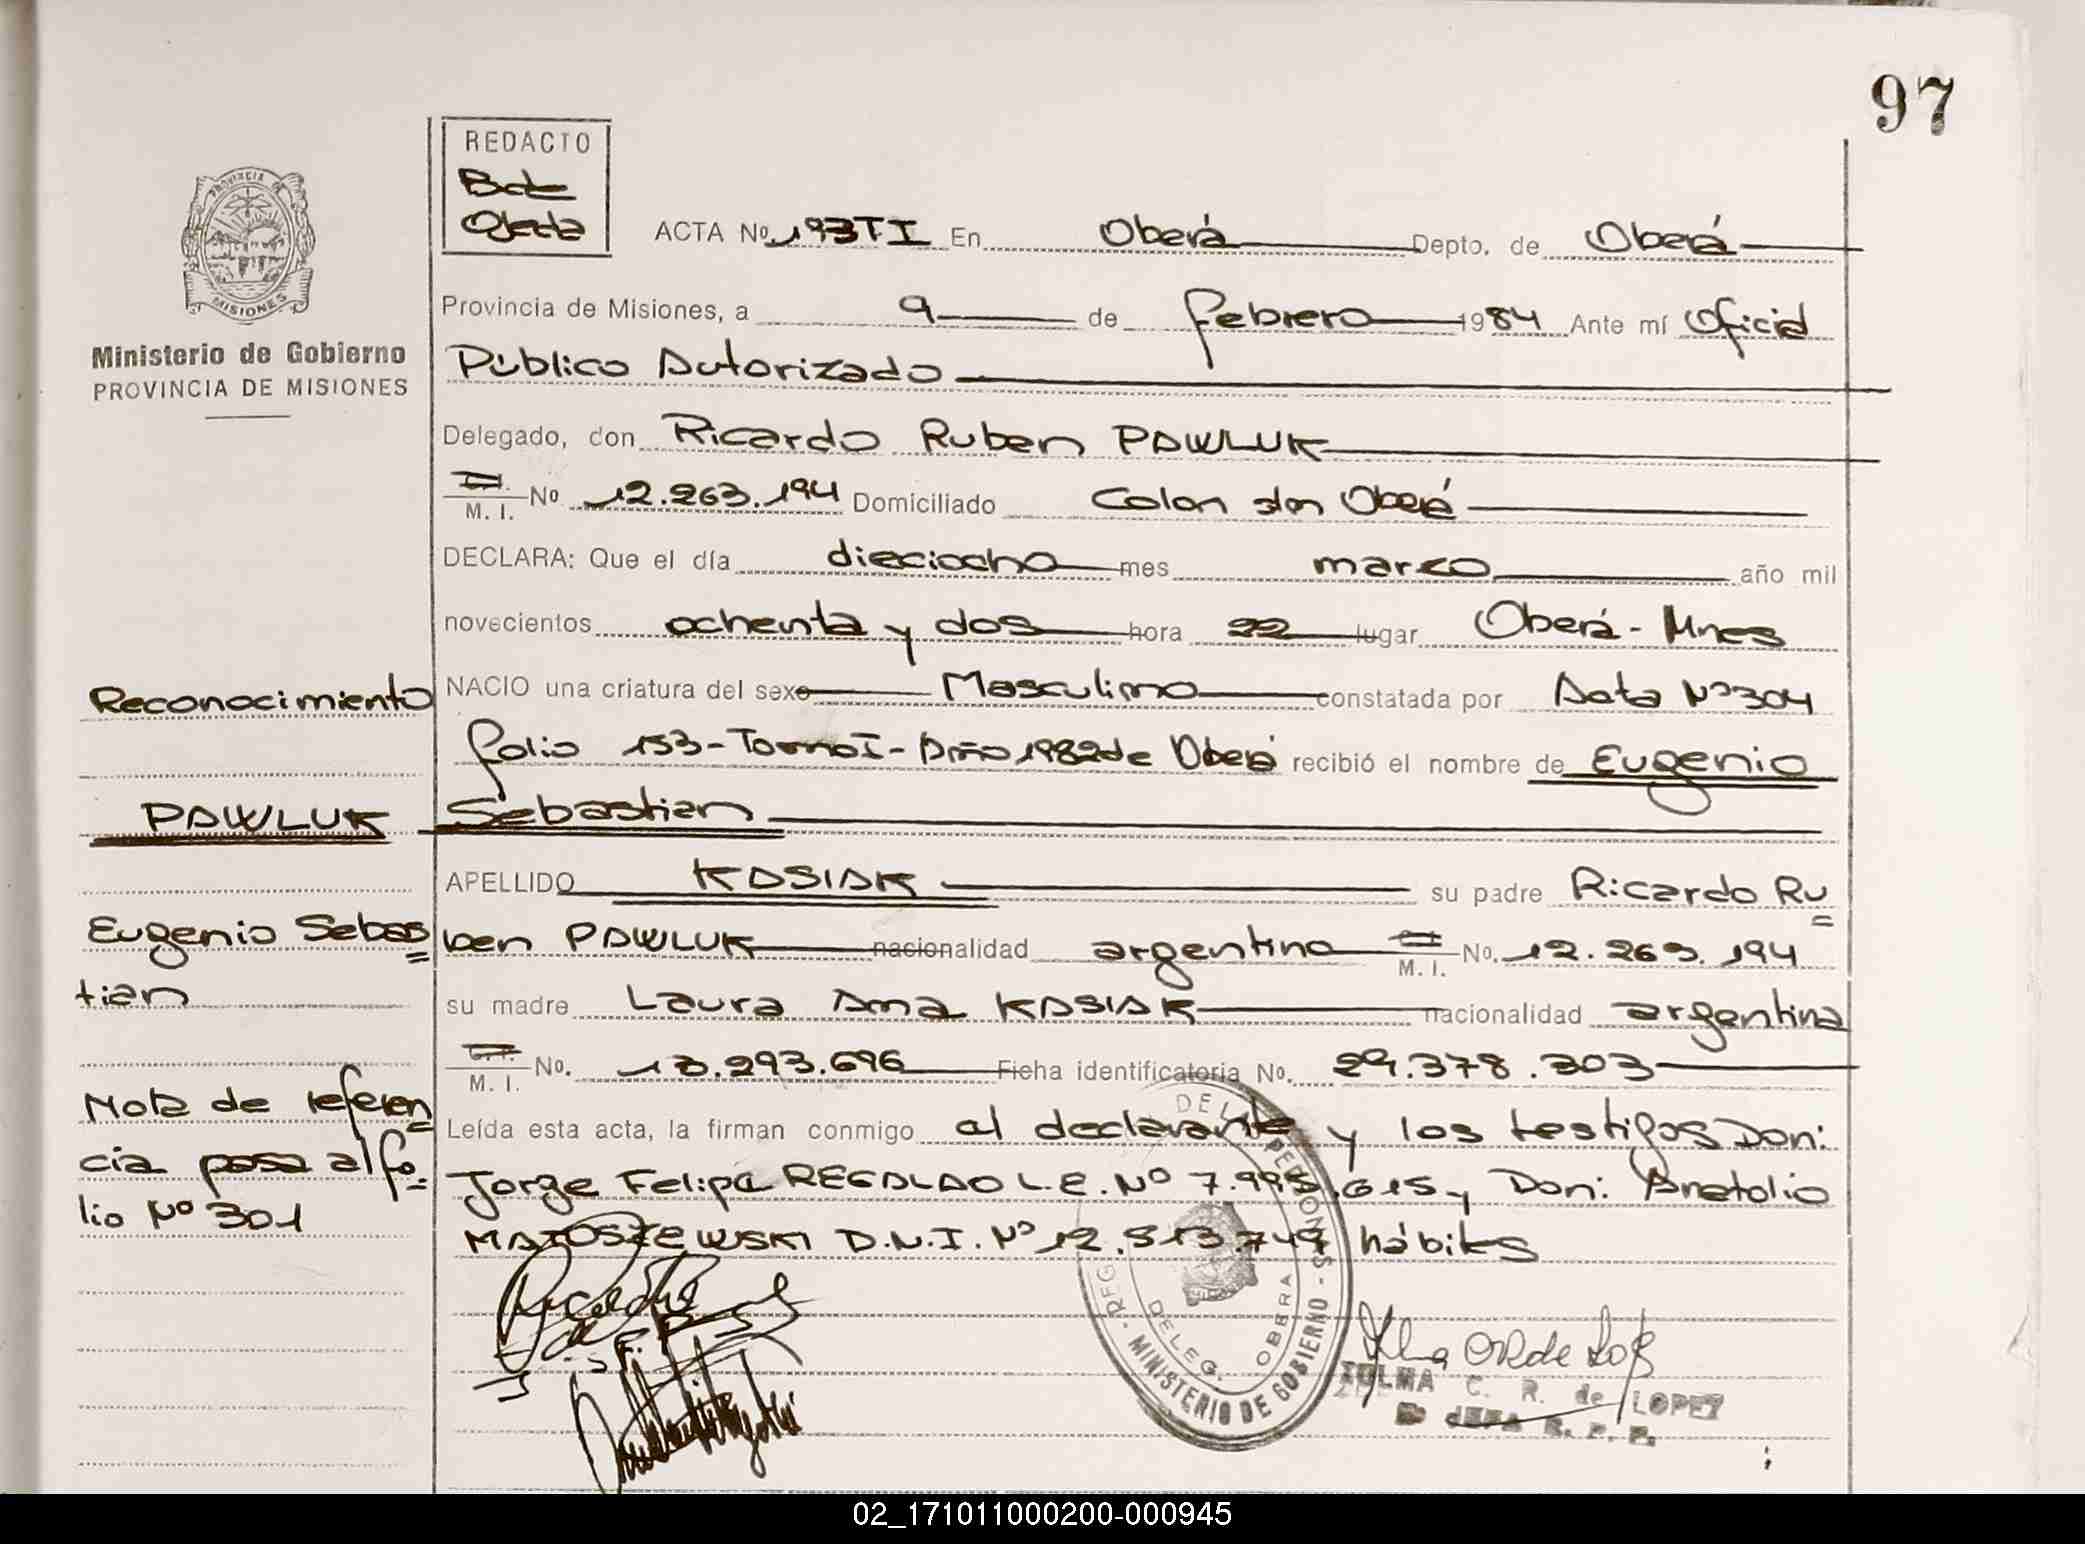 97
REDACTO
Bde
Ojeda
ACTA No. 193 T.I En Oberá Depto. de Oberá
PROVINCIA DE
MISIONES
Ministerio de Gobierno
PROVINCIA DE MISIONES
Provincia de Misiones, a 9 de febrero 1984 Ante mí Oficial
Público Autorizado
Delegado, don Ricardo Ruben PAWLUK
M. I. No 12.263.194 Domiciliado Colon s/n Oberá
DECLARA: Que el día dieciocho mes marzo año mil
novecientos ochenta y dos hora 22 lugar Oberá - Mnes
NACIO una criatura del sexo Masculino constatada por Acta Nº 304
folio 153 - Tomo I - Año 1982 de Oberá recibió el nombre de Eugenio
Sebastian
APELLIDO KASIAK su padre Ricardo Ru
ben PAWLUK nacionalidad argentino M. I. No. 12.263.194
su madre Laura Ana KASIAK nacionalidad argentina
M. I. No. 13.293.696 Ficha identificatoria No. 29.378.303
Leída esta acta, la firman conmigo el declarante y los testigos Don:
Jorge Felipe REGALADO L.E. Nº 7.995.615 y Don: Anatolio
MATOSZEWSKI D.N.I. Nº 12.513.747 hábiles
Reconocimiento
PAWLUK
Eugenio Sebas
tian
Nota de referen
cia pasa al fo
lio Nº 301
DE LAS PERSONAS
MINISTERIO DE GOBIERNO
DELEG. OBERA
ZULMA C. R. de LOPEZ
JEFA R. P. P.
02_171011000200-000945